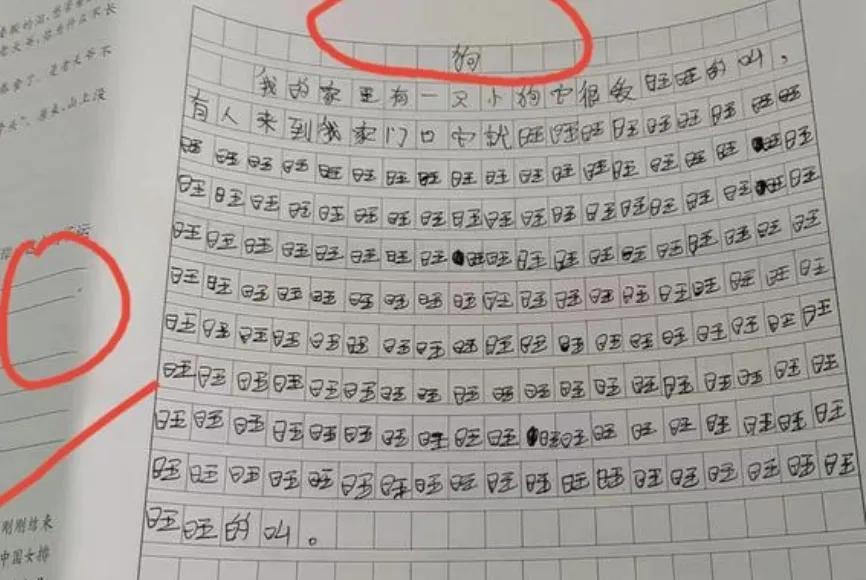 狗
我的家里有一只小狗它很爱旺旺的叫，
有人来到我家门口它就旺旺旺旺旺旺旺旺旺
旺旺旺旺旺旺旺旺旺旺旺旺旺旺旺旺旺旺旺
旺旺旺旺旺旺旺旺旺旺旺旺旺旺旺旺旺旺旺
旺旺旺旺旺旺旺旺旺旺旺旺旺旺旺旺旺旺旺
旺旺旺旺旺旺旺旺旺旺旺旺旺旺旺旺旺旺旺
旺旺旺旺旺旺旺旺旺旺旺旺旺旺旺旺旺旺旺
旺旺旺旺旺旺旺旺旺旺旺旺旺旺旺旺旺旺旺
旺旺旺旺旺旺旺旺旺旺旺旺旺旺旺旺旺旺旺
旺旺旺旺旺旺旺旺旺旺旺旺旺旺旺旺旺旺旺
旺旺的叫。
为什么不长
原来，山上没
刚刚结束
中国女排